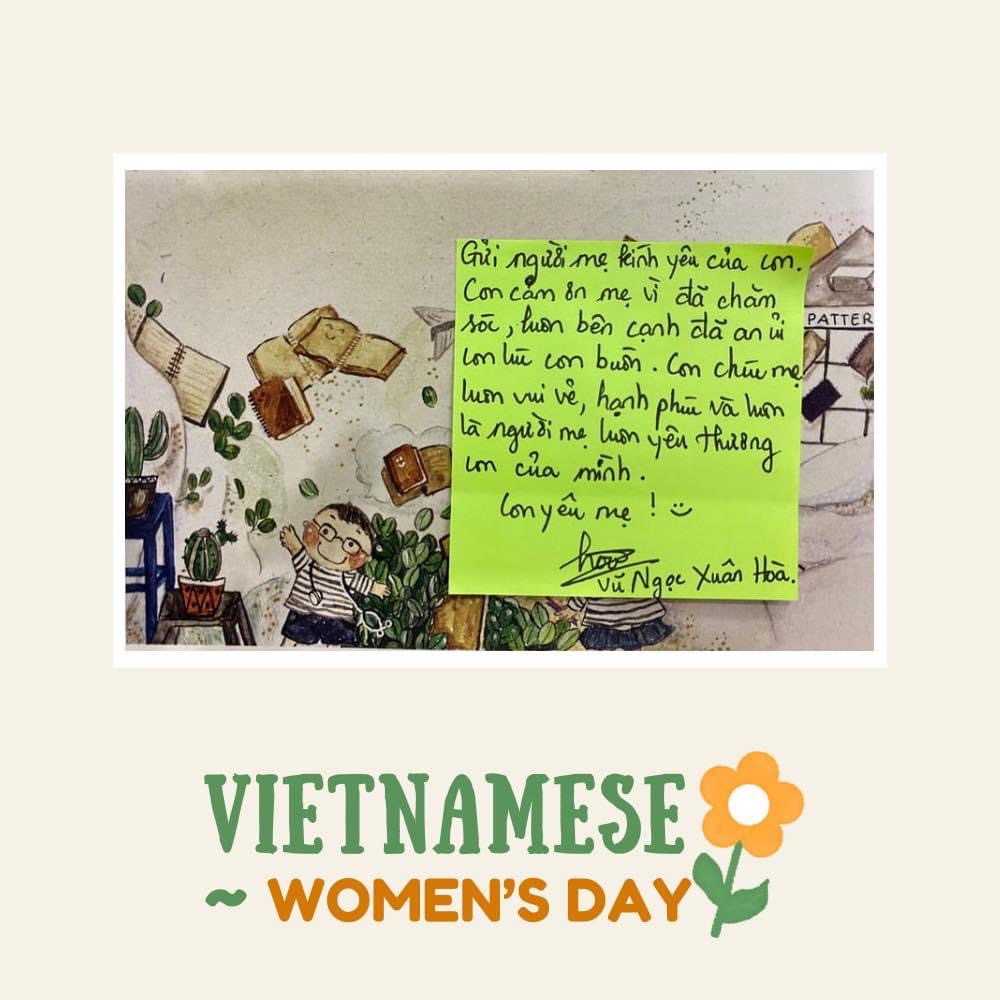 Gửi người mẹ kính yêu của con.
Con cảm ơn mẹ vì đã chăm
sóc, luôn bên cạnh đã an ủi
con lúc con buồn. Con chúc mẹ
luôn vui vẻ, hạnh phúc và luôn
là người mẹ luôn yêu thương
con của mình.
Con yêu mẹ !
Vũ Ngọc Xuân Hoà.
PATTER
VIETNAMESE
~ WOMEN'S DAY